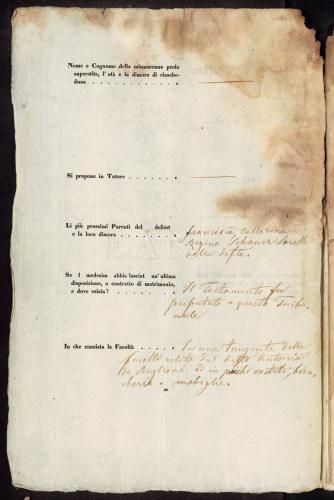 Nome e Cognome della minorenne prole
superstite, l' età e la dimora di ciasche-
duna . . . . . . . . . . . .
Si propone in Tutore . . . . . . . .
Li più prossimi Parenti del defont
e la loro dimora . . . . . . . .
Francesca, Cattarina e
Regina Schauer Sorelle
della defta.
Se i medesimi abbia lasciat un' ultima
disposizione, o contratto di matrimonio,
e dove esista? . . . . . . . . .
Il testamento fu
presentato a questo Tribu-
nale
In che consista la Facoltà . . . . .
In una tangente della
facoltà relitta dal defto Antonio
de Buglioni, ed in pochi vestiti, bian-
cheria e mobiglie.